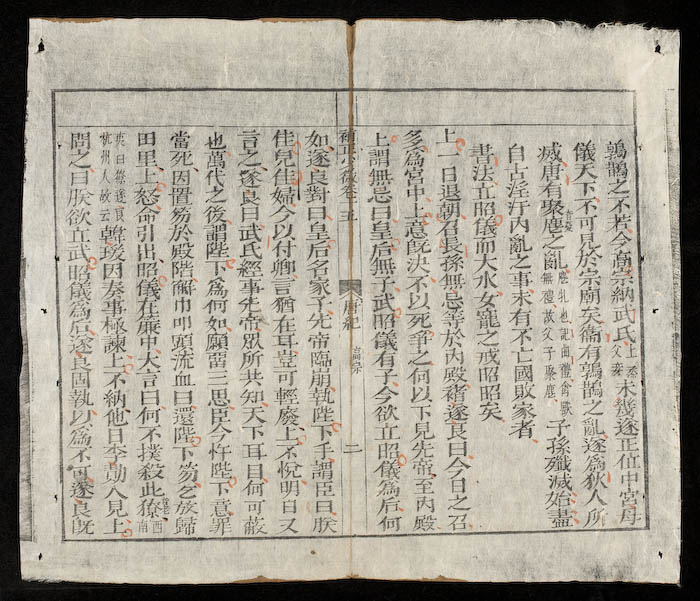 鶉鵲之不若今高宗納武氏上烝父妾未幾遂正位中宮母
儀天下不可見於宗廟矣衞有鶉鵲之亂遂爲狄人所
滅唐有聚麀之亂麀牝也記曲禮禽獸無禮故父子聚麀子孫殲滅始盡
自古淫汙內亂之事未有不亡國敗家者
書法立昭儀而大水女寵之戒昭昭矣
上一日退朝召長孫無忌等於內殿褚遂良曰今日之召
多爲宮中上意旣決不以死爭之何以下見先帝至內殿
上謂無忌曰皇后無子武昭儀有子今欲立昭儀爲后何
補正少微卷五 唐紀 高宗 二
如遂良對曰皇后名家子先帝臨崩執陛下手謂臣曰朕
佳兒佳婦今以付卿言猶在耳豈可輕廢上不悅明日又
言之遂良曰武氏經事先帝眾所共知天下耳目何可蔽
也萬代之後謂陛下爲何如願留三思臣今忤陛下意罪
當死因置笏於殿階解巾叩頭流血曰還陛下笏乞放歸
田里上怒命引出昭儀在簾中大言曰何不撲殺此獠西南
夷曰獠遂良杭州人故云韓瑗因奏事極諫上不納他日李勣入見上
問之曰朕欲立武昭儀爲后遂良固執以爲不可遂良旣